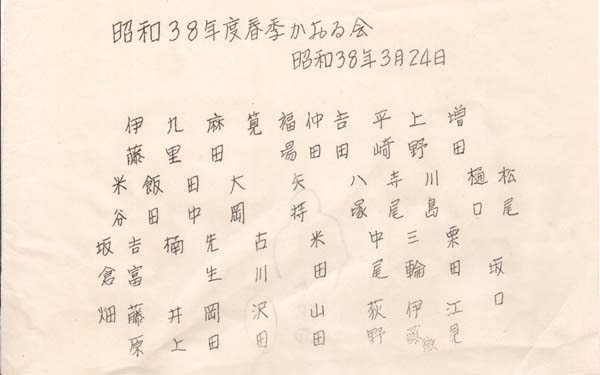 昭和38年度春季かおる会
昭和38年3月24日
伊藤 九里 麻田 筧 福場 仲田 吉田 平崎 上野 増田
米谷 飯田 田中 大岡 矢持 八塚 寺尾 川島 樋口 松尾
坂倉 吉富 楠 先生 古川 米田 中尾 三輪 栗田 坂口
畑 藤原 井上 岡田 沢田 山田 荻野 伊藤 江見